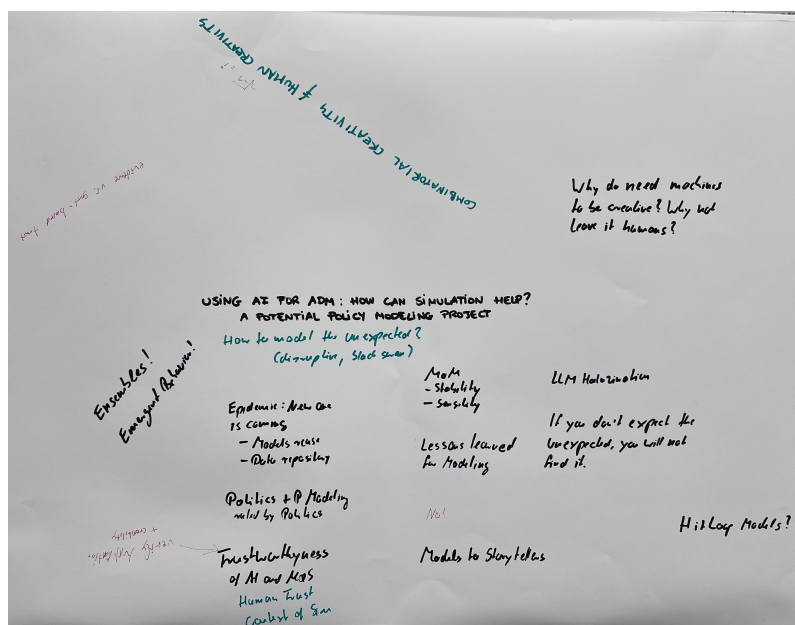 COMBINATORIAL CREATIVITY ≠ HUMAN CREATIVITY
evidence vs. gut-based trust
Why do need machines
to be creative? Why not
leave it humans?
USING AI FOR ADM: HOW CAN SIMULATION HELP?
A POTENTIAL POLICY MODELING PROJECT
How to model the unexpected?
(disruptive, black swan)
Ensembles!
Emergent Behavior!
Epidemic: New one
is coming
- Models reuse
- Data repository
MoM
- Stability
- Sensility
LLM Halozination
Lessons learned
for Modeling
If you don't expect the
unexpected, you will not
find it.
Politics + P Modeling
ruled by Politics
No!
HitLoop Models?
verify
+ credibility
Trustworthyness
of AI and M&S
Human Trust
Context of Sim
Models to Storytellers